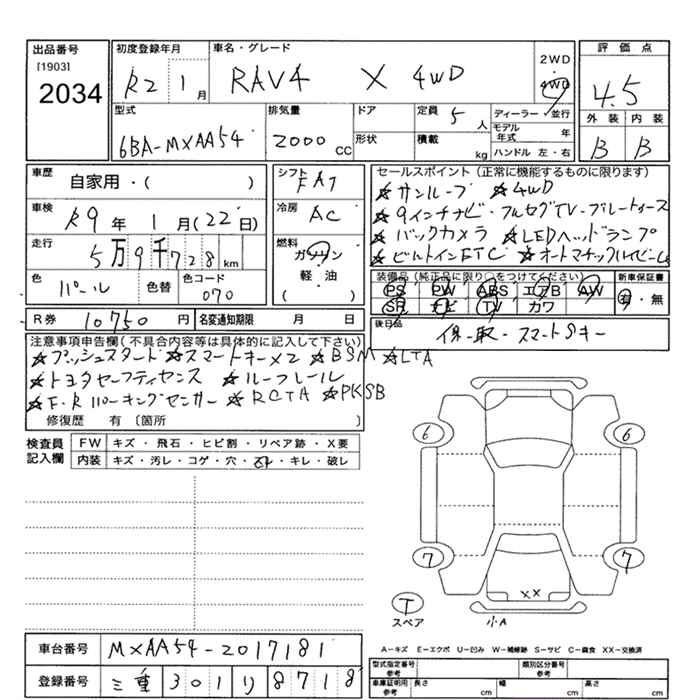 出品番号
[1903]
2034
初度登録年月
R2 1月
車名・グレード
RAV4 X 4WD
2WD
4WD
評価点
4.5
外装 内装
B B
型式
6BA-MXAA54
排気量
2000 CC
ドア
形状
定員 5人
積載 kg
ディーラー・並行
モデル年式 年
ハンドル 左・右
車歴
自家用・( )
車検
R9年 1月(22日)
走行
5万9千728km
色
パール
色替
色コード
070
シフト
FAT
冷房
AC
燃料
ガソリン
軽・油
( )
セールスポイント(正常に機能するものに限ります)
★サンルーフ ★4WD
★9インチナビ・フルセグTV・ブルートゥース
★バックカメラ ★LEDヘッドランプ
★ビルトインETC ★オートマチックハイビーム
装備品(純正品に限り○をつけてください)
PS PW ABS エアB AW
SR ナビ TV カワ
新車保証書
有・無
後日品
保・取・スマートSキー
R券 10750円
名変通知期限 月 日
注意事項申告欄(不具合内容等は具体的に記入して下さい)
★プッシュスタート ★スマートキー×2 ★BSM ★LTA
★トヨタセーフティセンス ★ルーフレール
★F・Rパーキングセンサー ★RCTA ★PKSB
修復歴 有 〔箇所 〕
検査員記入欄
FW キズ・飛石・ヒビ割・リペア跡・X要
内装 キズ・汚レ・コゲ・穴・・キレ・破レ
6 6
7 7
XX
T
スペア
小A
A-キズ E-エクボ U-凹み W-補修跡 S-サビ C-腐食 XX-交換済
車台番号 MXAA54-2017181
登録番号 三重 301 り 8718
型式指定番号 参考
類別区分番号 参考
車庫証明用 参考 長さ cm 幅 cm 高さ cm